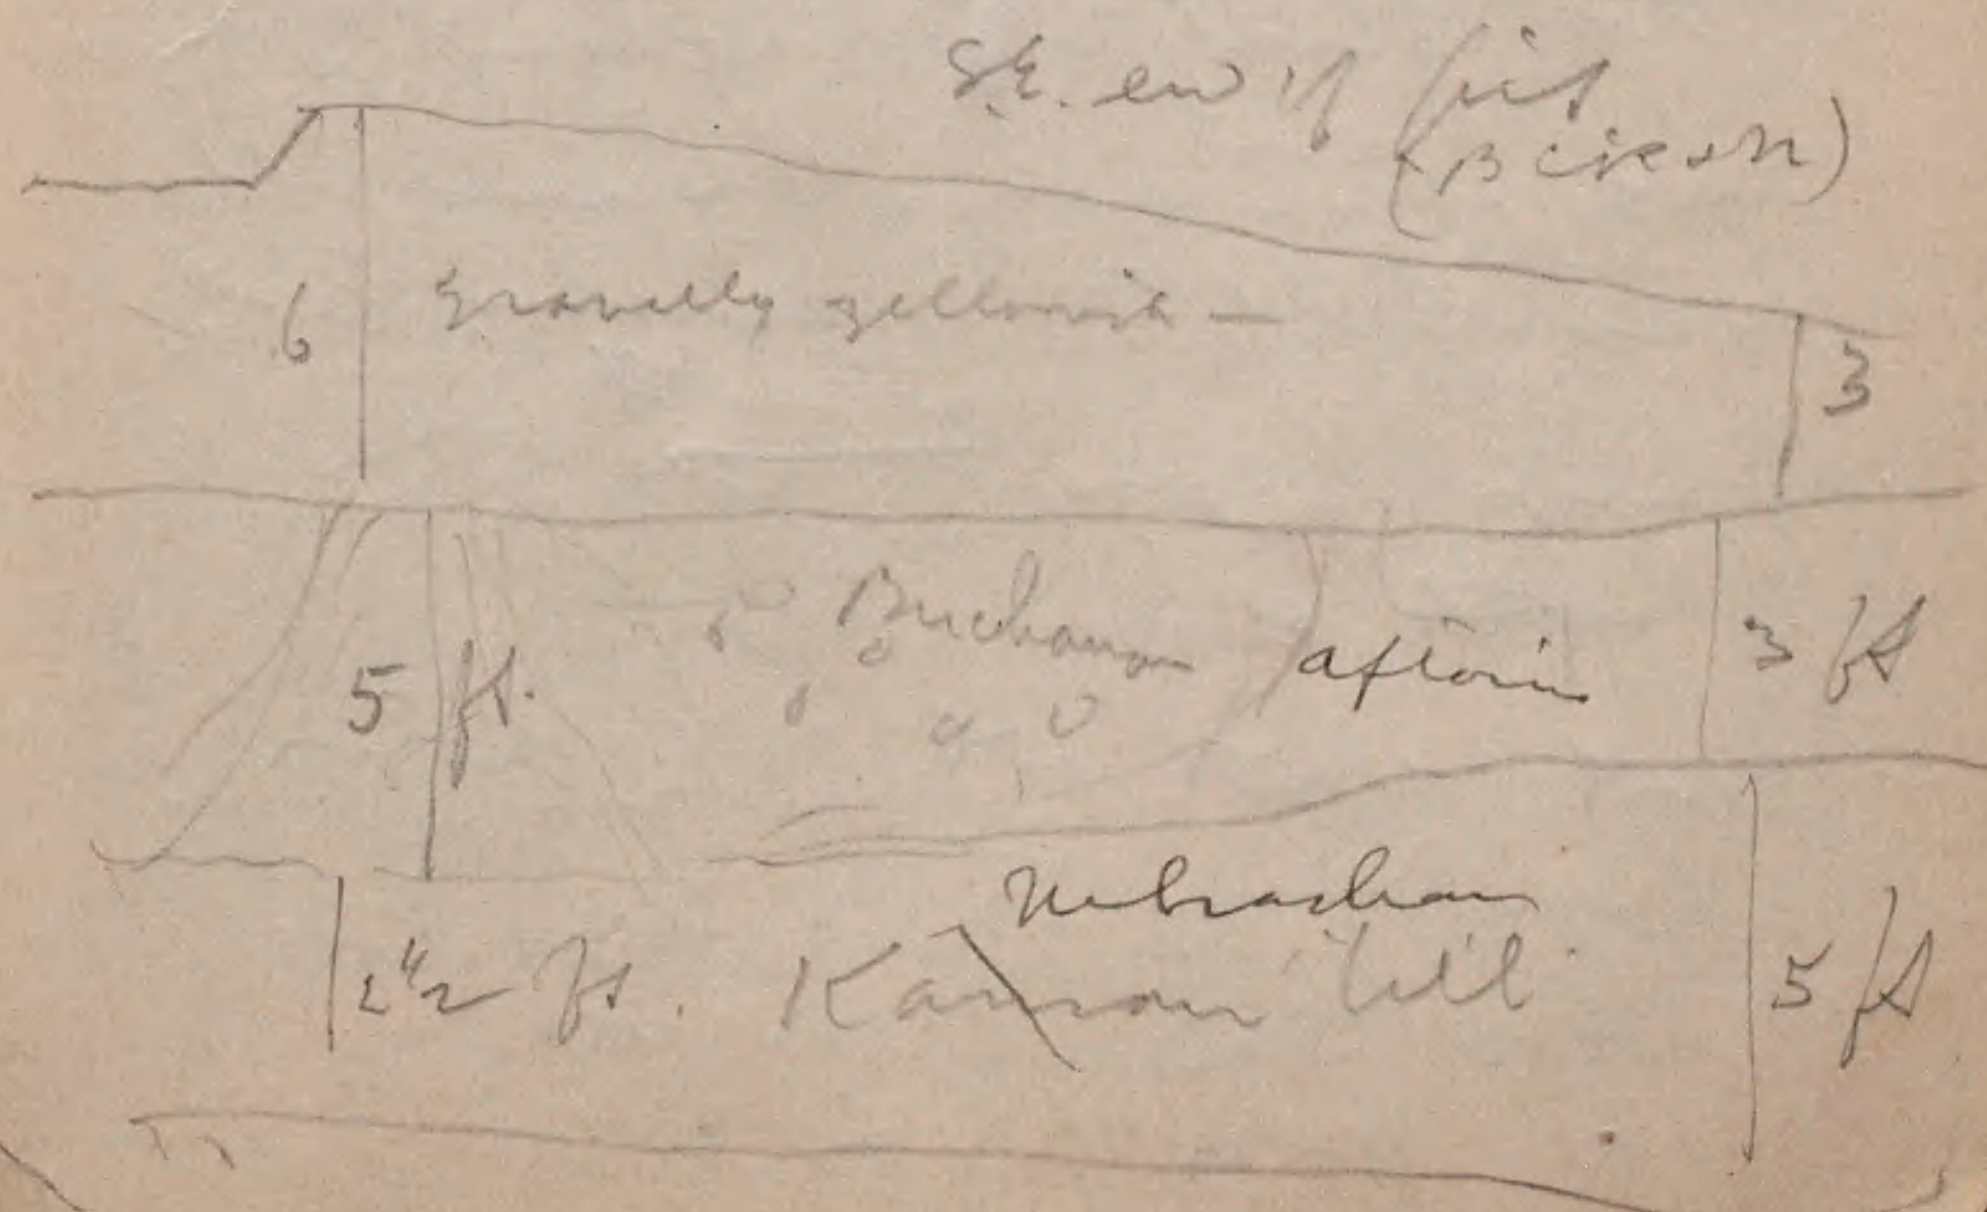 S.E. end of pit
(Bcikson)
6 Gravelly yellowish — 3
5 ft. Buchanan) aftonian 3 ft
Nebraskan
2 1/2 ft. Kansan till 5 ft